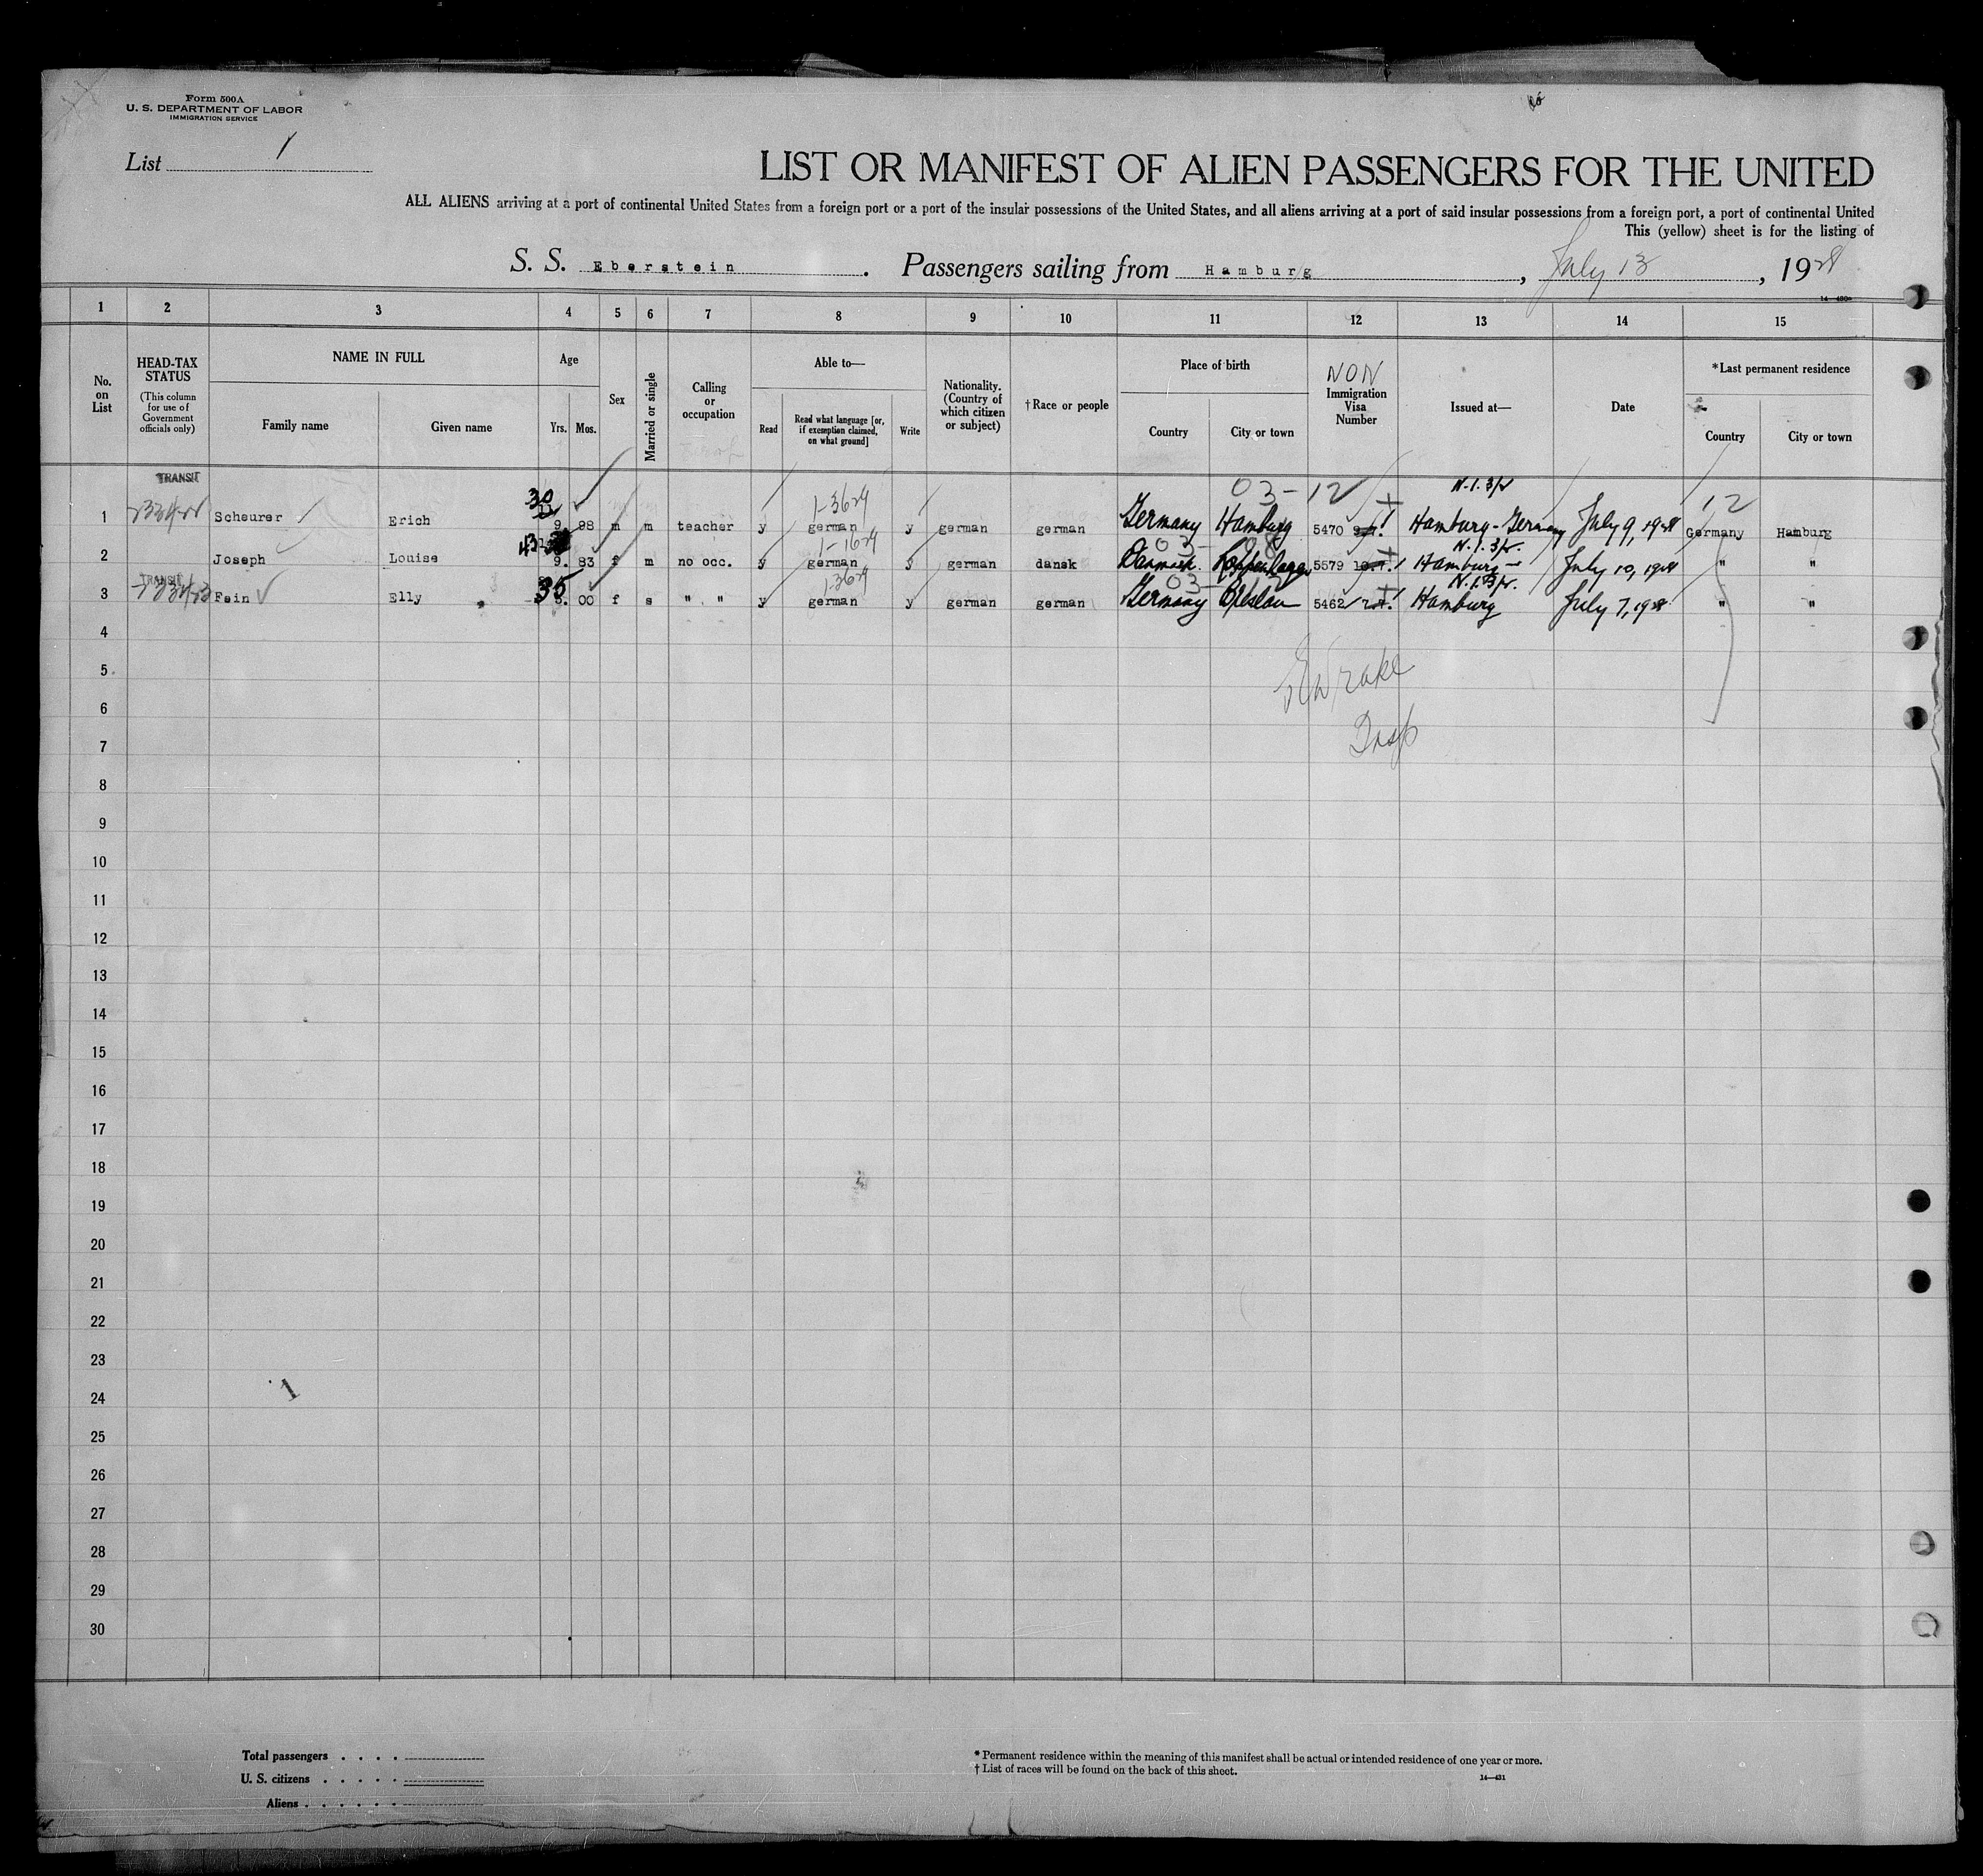 Form 500A
U. S. DEPARTMENT OF LABOR
IMMIGRATION SERVICE
List 1
LIST OR MANIFEST OF ALIEN PASSENGERS FOR THE UNITED
ALL ALIENS arriving at a port of continental United States from a foreign port or a port of the insular possessions of the United States, and all aliens arriving at a port of said insular possessions from a foreign port, a port of continental United
This (yellow) sheet is for the listing of
S. S. Eberstein . Passengers sailing from Hamburg , July 13 , 1928
1 2 3 4 5 6 7 8 9 10 11 12 13 14 15
No. on List
HEAD-TAX STATUS
(This column for use of Government officials only)
NAME IN FULL
Family name
Given name
Age
Yrs. Mos.
Sex
Married or single
Calling or occupation
Able to—
Read
Read what language [or, if exemption claimed, on what ground]
Write
Nationality. (Country of which citizen or subject)
† Race or people
Place of birth
Country
City or town
NON
Immigration Visa Number
Issued at—
Date
*Last permanent residence
Country
City or town
TRANSIT 03-12 N.I. 3/2 12
1 Scheurer Erich 30 9 98 m m teacher y german y german german Germany Hamburg 5470 Hamburg-Germany July 9, 1928 Germany Hamburg
2 Joseph Louise 43 9. 83 f m no occ. y german y german dansk 5579 Hamburg July 10, 1928 " "
TRANSIT
3 Fein Elly 35 00 f s " " y german y german german Germany 5462 Hamburg July 7, 1928 " "
4
5
6
7
8
9
10
11
12
13
14
15
16
17
18
19
20
21
22
23
24
25
26
27
28
29
30
Insp
1
Total passengers . . . .
U. S. citizens . . . . .
Aliens . . . . . .
* Permanent residence within the meaning of this manifest shall be actual or intended residence of one year or more.
† List of races will be found on the back of this sheet.
14—431